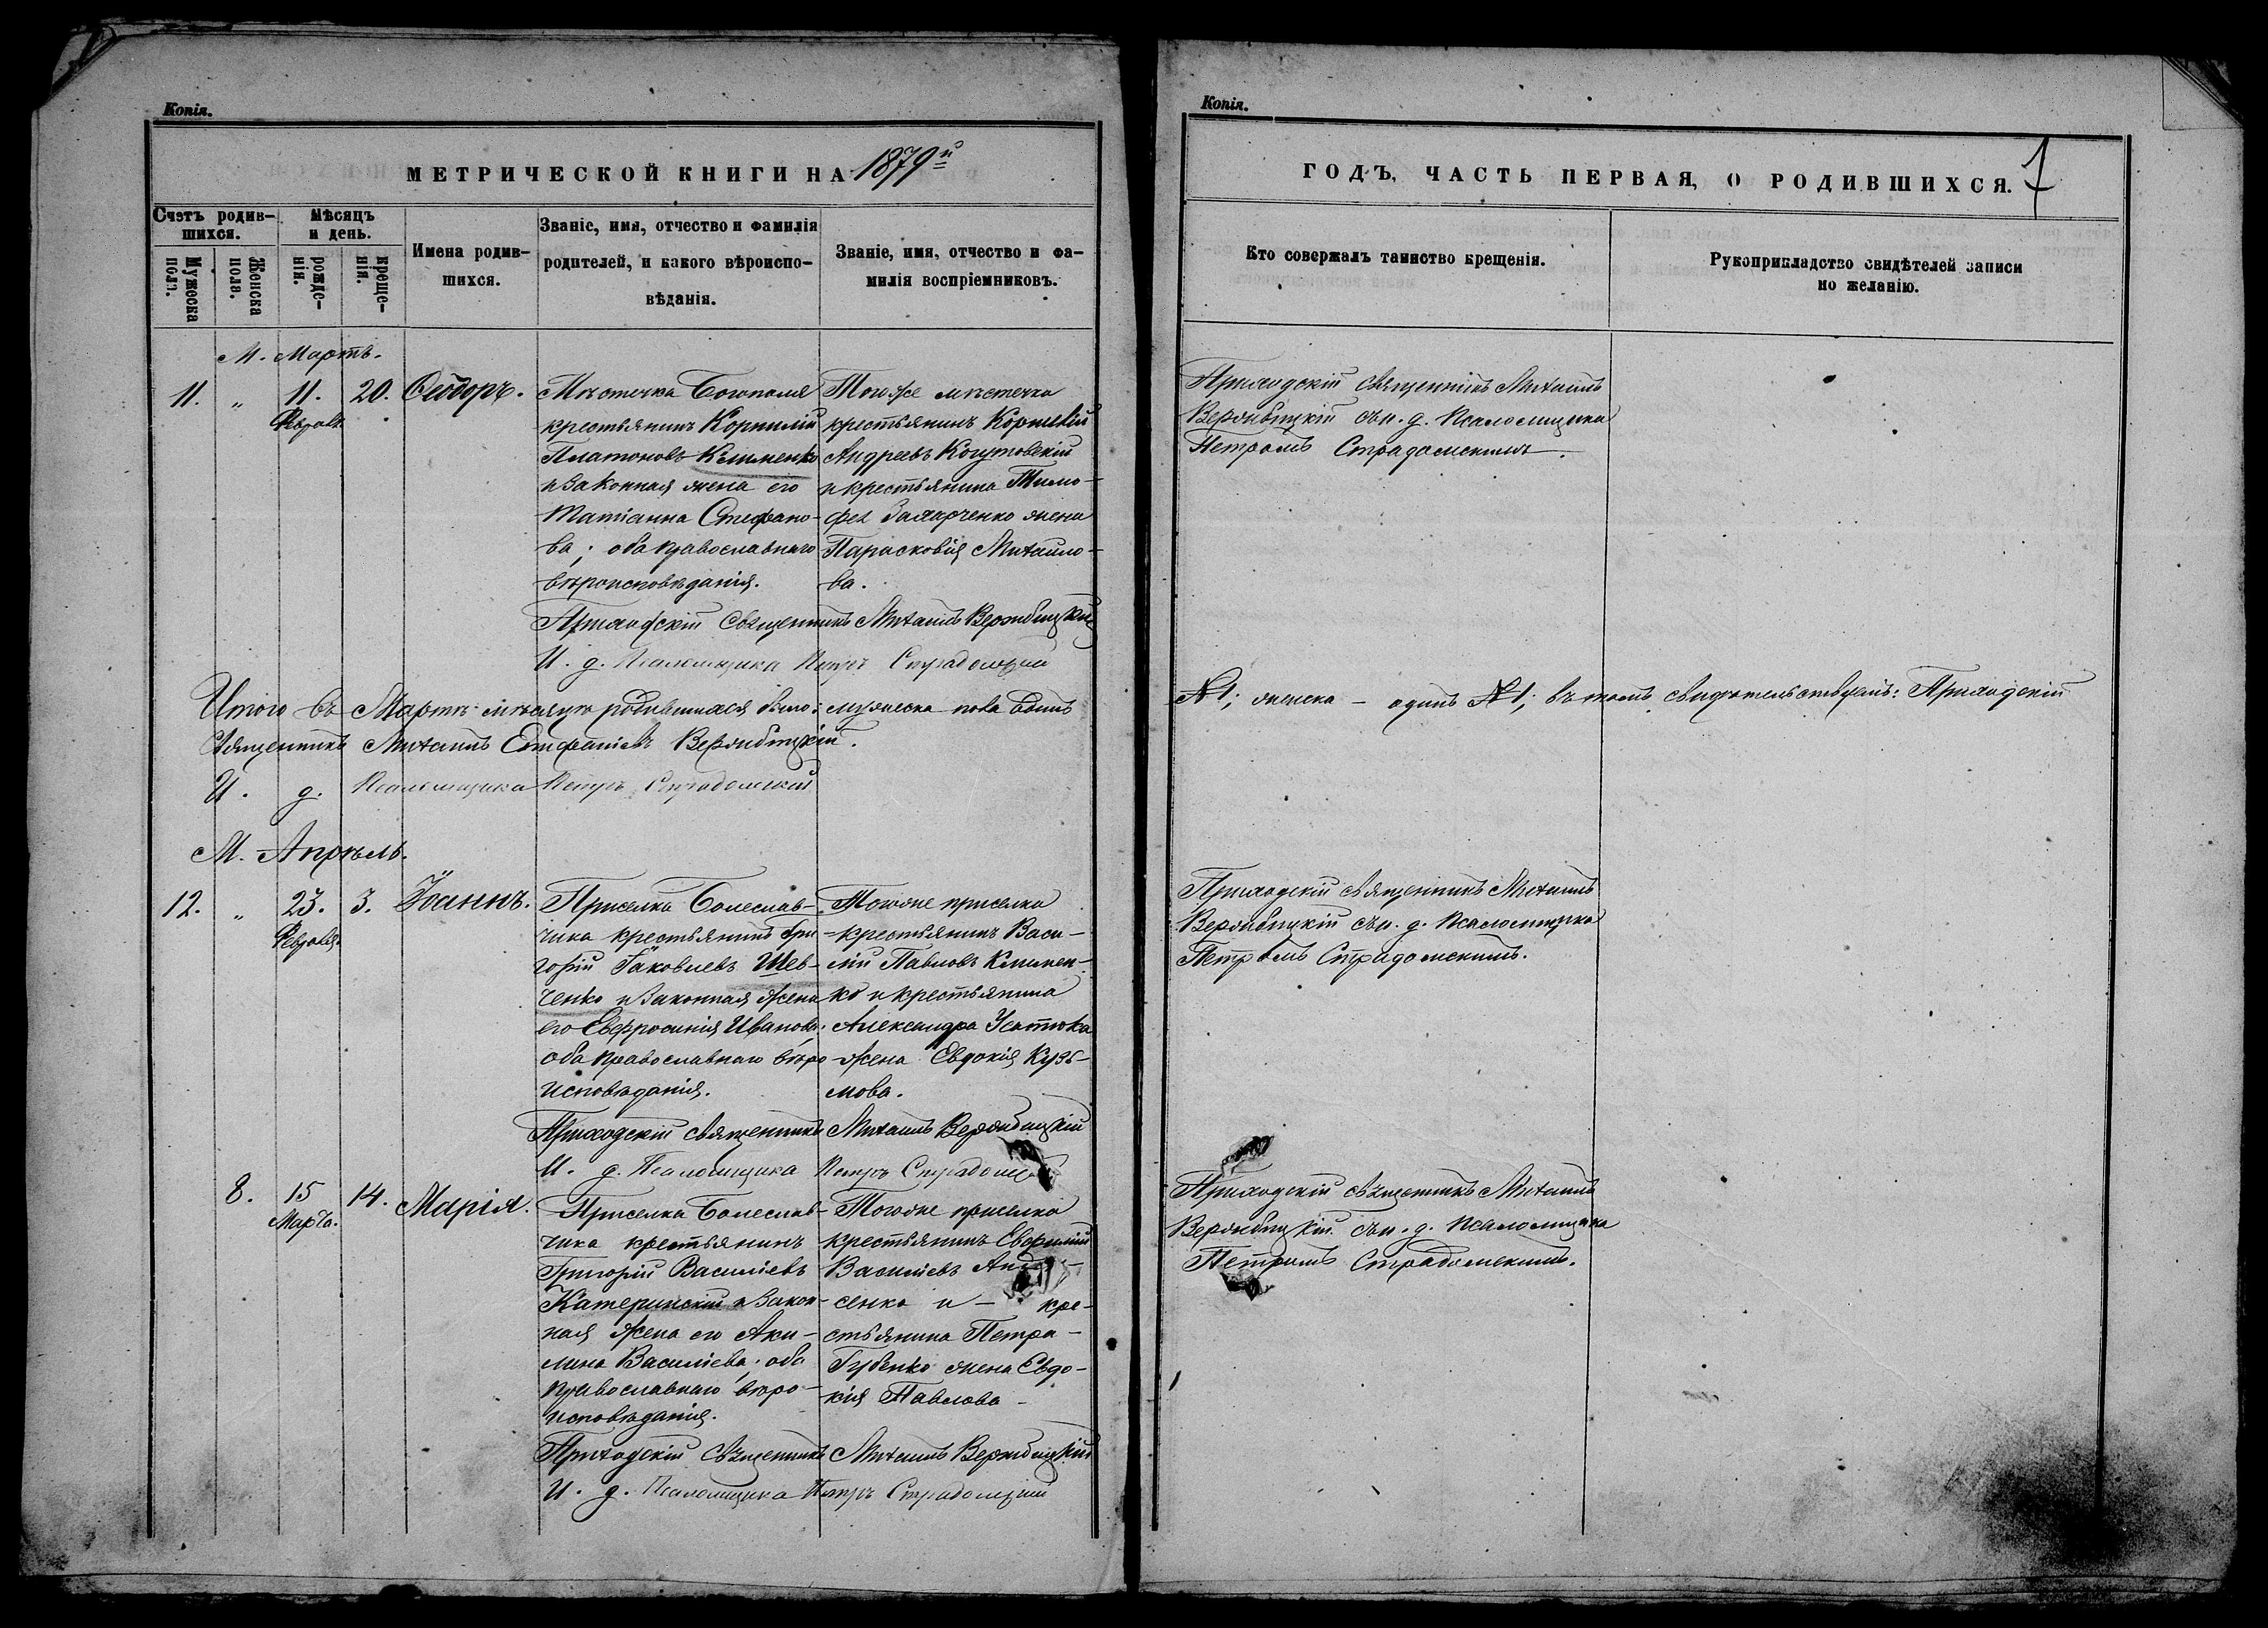 Копія.
МЕТРИЧЕСКОЙ КНИГИ НА 1879й
Счэтъ родив-
шихся.
Мужеска
пола.
Женска
пола.
Мѣсяцъ
и день.
рожде-
нія.
креще-
нія.
Имена родив-
шихся.
Званіе, имя, отчество и фамилія
родителей, и какого вѣроиспо-
вѣданія.
Званіе, имя, отчество и фа-
милія воспріемниковъ.
М. Мартъ.
11. „ 11. 20. Ѳеодоръ.
Февраля
Мѣстечка Богополя
крестьянинъ Корнилій
Платоновъ Клименко
и законная жена его
Татіанна Стефано-
ва; оба православнаго
вѣроисповѣданія.
Тогоже мѣстечка
крестьянинъ Корнелій
Андреевъ Когутовскій
и крестьянина Тимо-
фея Захарченко жена
Парасковія Михайло-
ва.
Приходскій Священникъ Михаилъ Вержбицкій
И. д. Псаломщика Петръ Страдомскій
Итого въ Мартѣ мѣсяцѣ родившихся было: мужеска пола одинъ
Священникъ Михаилъ Епифаніевъ Вержбицкій.
И. д. Псаломщика Петръ Страдомскій
М. Апрѣль.
12. „ 23. 3. Іоаннъ.
Февраля
Приселка Болеслав-
чика крестьянинъ Гри
горій Іаковлевъ Шев-
ченко и законная жена
его Евфросинія Иванова;
оба православнаго вѣро
исповѣданія.
Тогоже приселка
крестьянинъ Васи-
лій Павловъ Климен-
ко и крестьянина
Александра Усатюка
жена Евдокія Кузь-
мова.
Приходскій священникъ Михаилъ Вержбицкій
И. д. Псаломщика Петръ Страдомскій
8. 15 14. Марія.
Марта.
Приселка Болеслав-
чика крестьянинъ
Григорій Василіевъ
Катеринскій и закон-
ная жена его Аки-
лина Василіева; оба
православнаго вѣро-
исповѣданія.
Тогоже приселка
крестьянинъ Евфимій
Василіевъ
сенко и - кре-
стьянина Петра
Губенко жена Евдо-
кія Павлова
Приходскій Священникъ Михаилъ Вержбицкій
И. д. Псаломщика Петръ Страдомскій
Копія.
ГОДЪ, ЧАСТЬ ПЕРВАЯ, О РОДИВШИХСЯ. 7
Кто совержалъ таинство крещенія.
Рукоприкладство свидѣтелей записи
по желанію.
Приходскій священникъ Михаилъ
Вержбицкій съ и. д. Псаломщика
Петромъ Страдомскимъ.
№1; женска - одинъ №1; въ томъ свидѣтельствуемъ: Приходскій
Приходскій священникъ Михаилъ
Вержбицкій съ и. д. Псаломщика
Петромъ Страдомскимъ.
Приходскій священникъ Михаилъ
Вержбицкій съ и. д. Псаломщика
Петромъ Страдомскимъ.